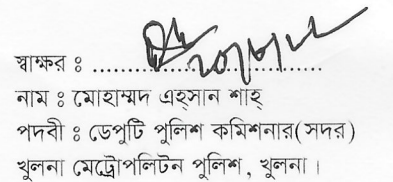 স্বাক্ষর ঃ ........................................
নাম ঃ মোহাম্মদ এহ্সান শাহ্
পদবী ঃ ডেপুটি পুলিশ কমিশনার(সদর)
খুলনা মেট্রোপলিটন পুলিশ, খুলনা।